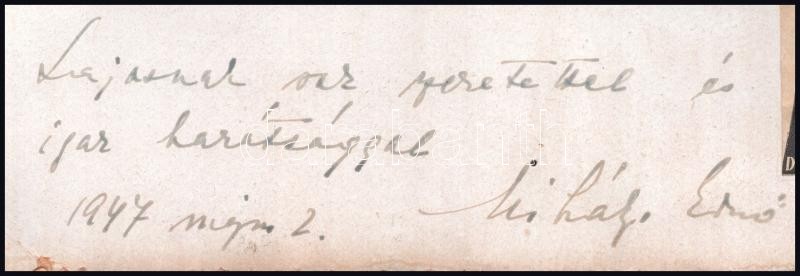 Lajosnak sok szeretettel és
igaz barátsággal
1947 május 2. Mihályi Ernő
D